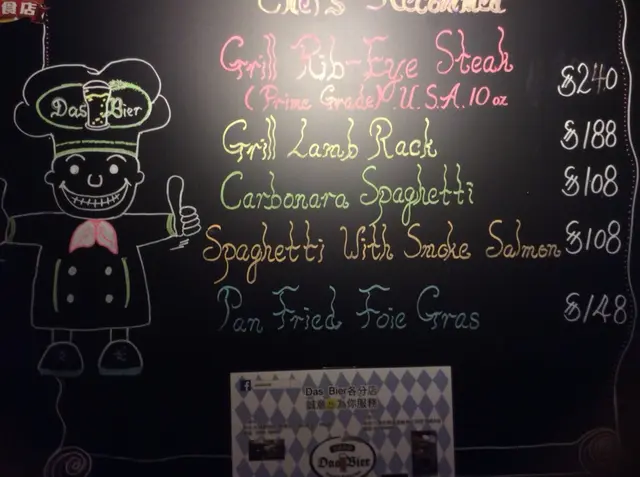 食店
Chef's Recommed
Grill Rib-Eye Steak
(Prime Grade) U.S.A. 10 oz
$240
Das Bier
Grill Lamb Rack
$188
Carbonara Spaghetti
$108
Spaghetti With Smoke Salmon
$108
Pan Fried Foie Gras
$148
Das Bier各分店
誠意為你服務
Das Bier